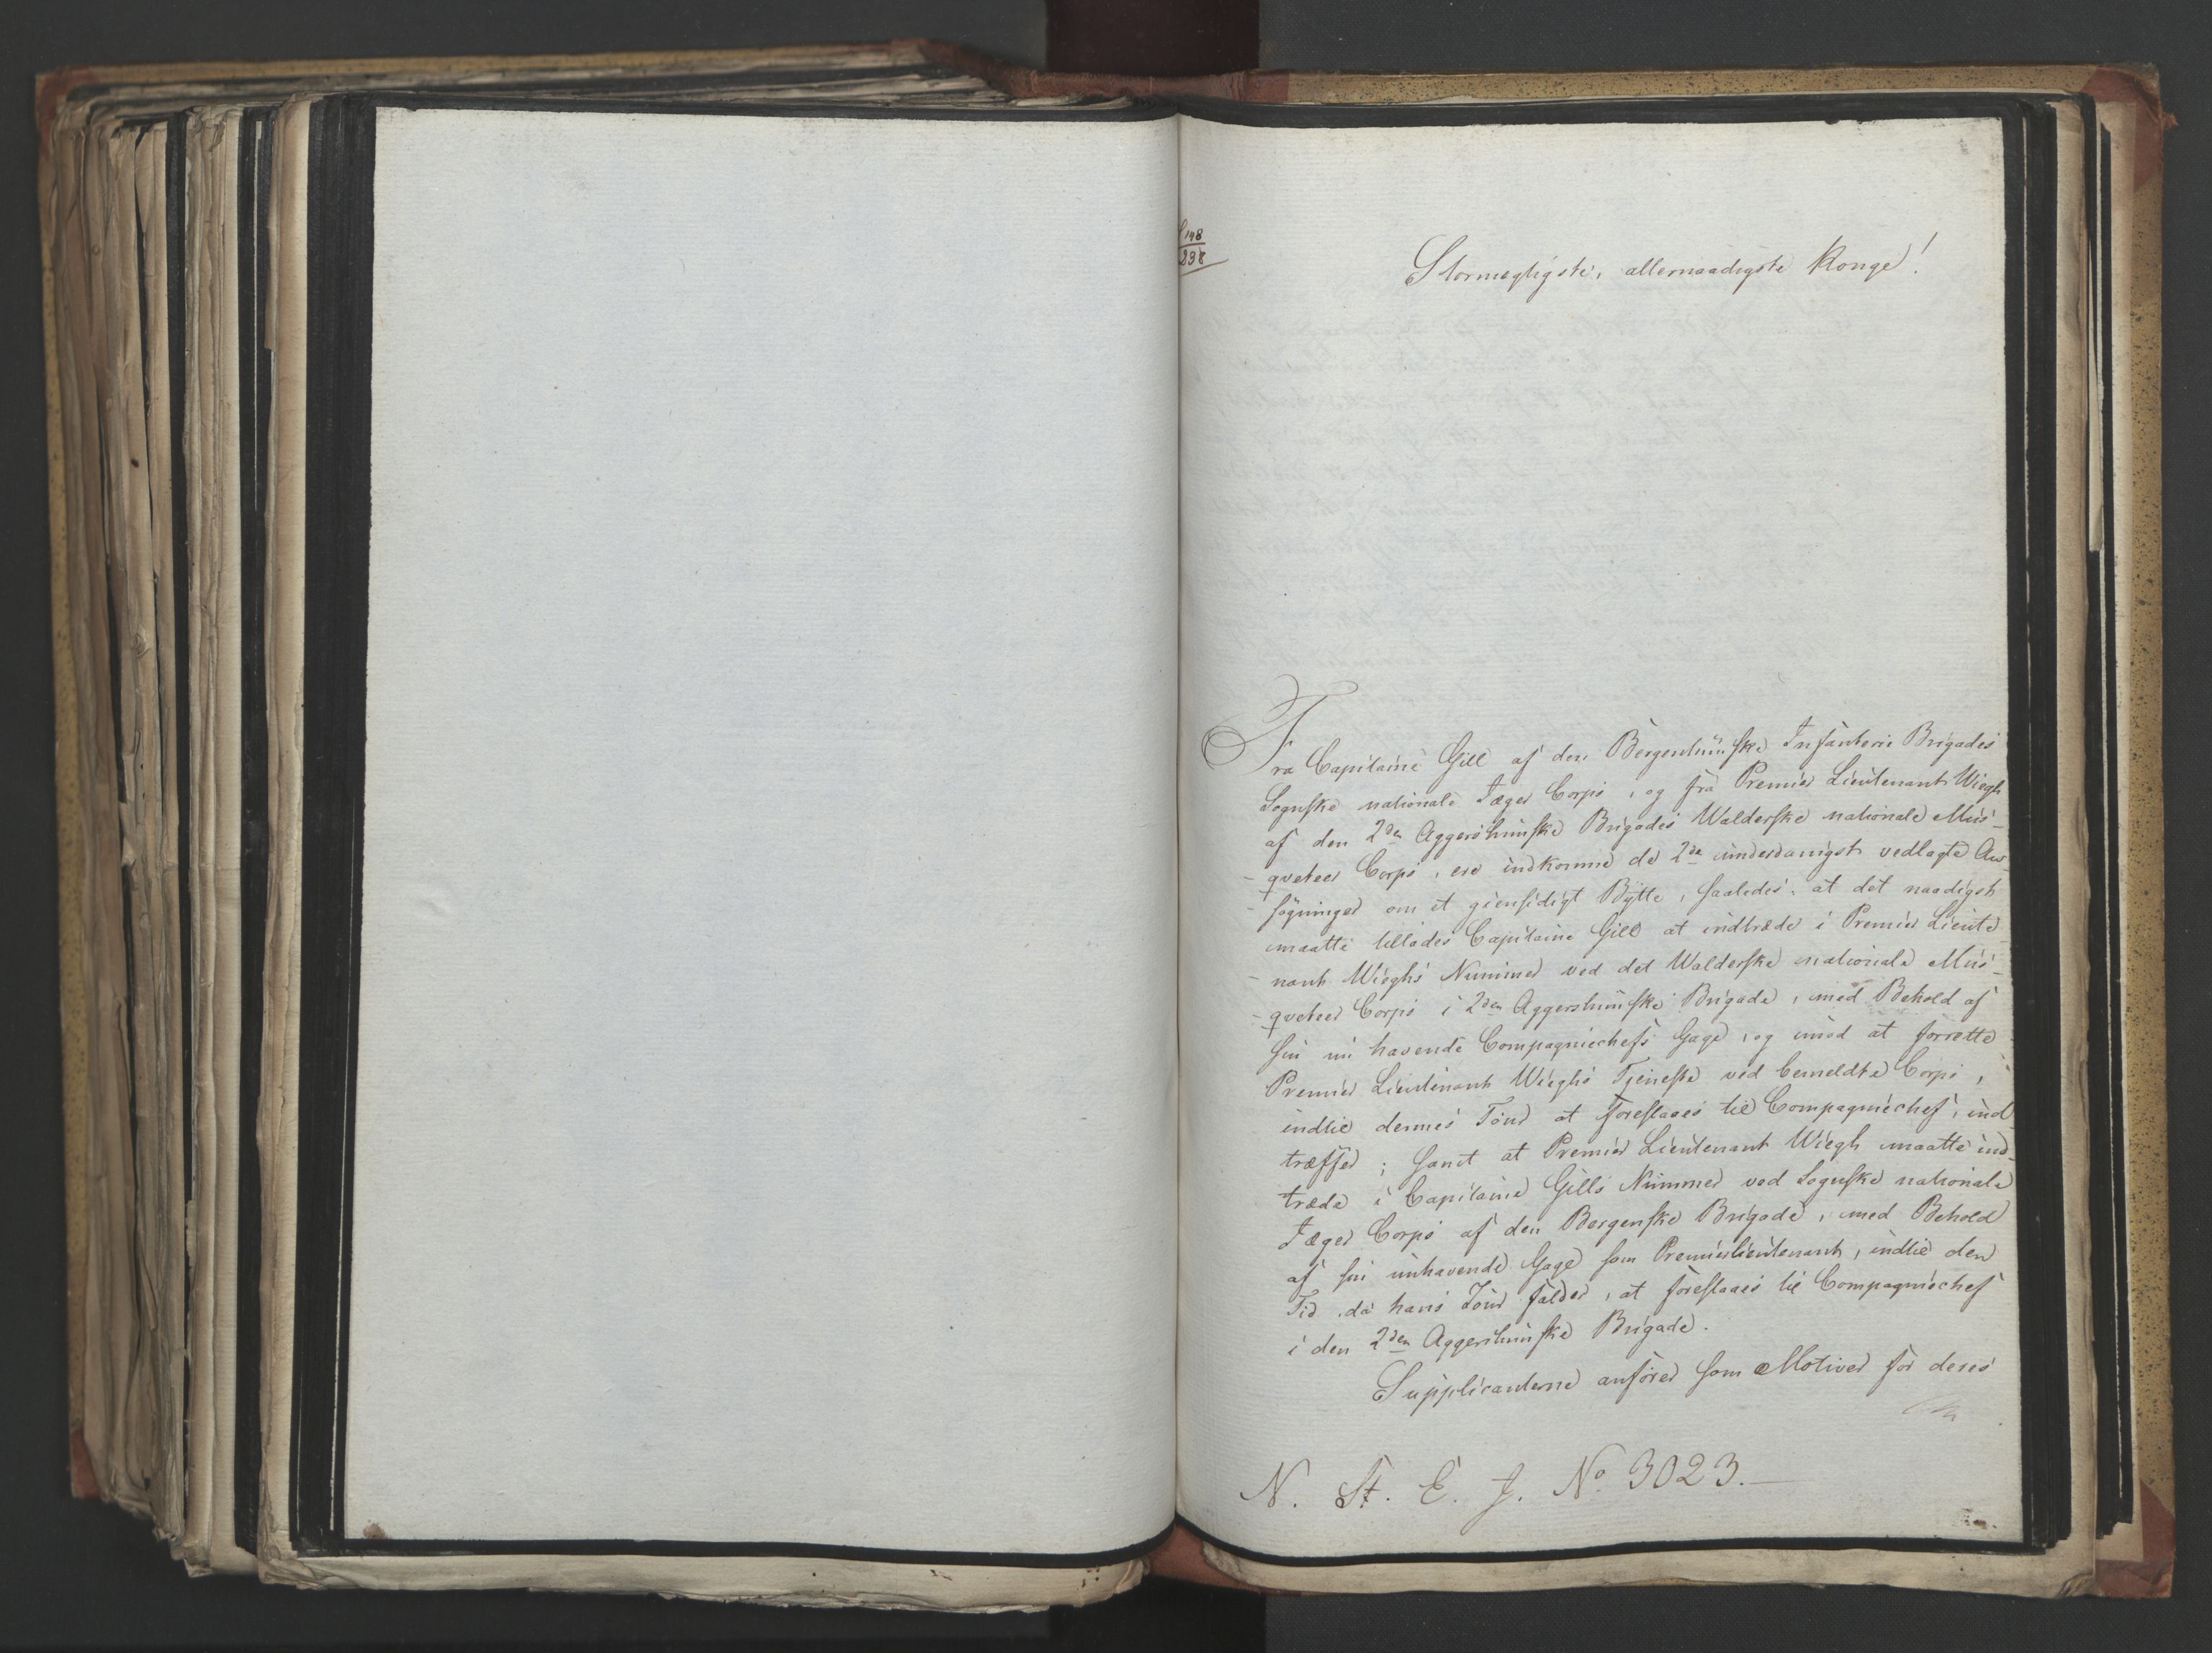 148
238
Stormegtigste, allernaadigste Konge!
Fra Capitaine Gill af den Bergenhuusske Infanterie Brigades
Sognske nationale Jæger Corps, og fra Premier Lieutenant Wiegh
af den 2den Aggershuusske Brigades Walderske nationale Mus-
qveteer Corps, ere indkomne de 2de underdanigst vedlagte An-
søgninger om et giensidigt Bytte, saaledes: at det naadigst
maatte tillades Capitaine Gill at indtræde i Premier Lieute-
nant Wieghs Nummer ved det Walderske nationale Mus-
qveteer Corps i 2den Aggershuusske Brigade, med Behold af
sin nu havende Compagniechefs Gage, og imod at forrette
Premier Lieutenant Wieghs Tjeneste ved bemeldte Corps,
indtil dennes Tour at foreslaaes til Compagniechef, ind-
træffer; samt at Premier Lieutenant Wiegh maatte ind-
træde i Capitaine Gills Nummer ved Sognske nationale
Jæger Corps af den Bergenske Brigade, med Behold
af sin nuhavende Gage som Premierlieutenant, indtil den
Tid da hans Tour falder, at foreslaaes til Compagniechef
i den 2den Aggershuusske Brigade.
Supplicanterne anfører som Motiver for deres
N. St. E. J. No 3023.